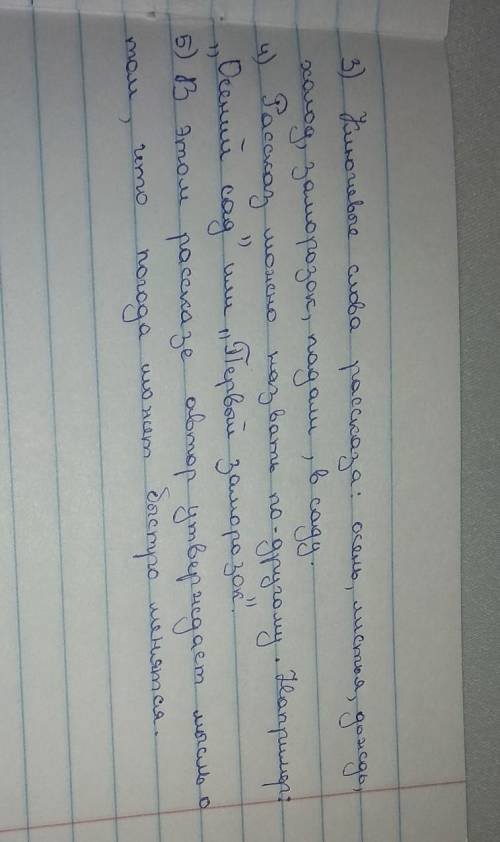 3) Ключевые слова рассказа: осень, листья, дождь,
холод, заморозок, падали, в саду.
4) Рассказ можно назвать по-другому. Например:
„Осений сад" или „Первый заморозок".
5) В этом рассказе автор утверждает мысль о
том, что погода может быстро менятся.